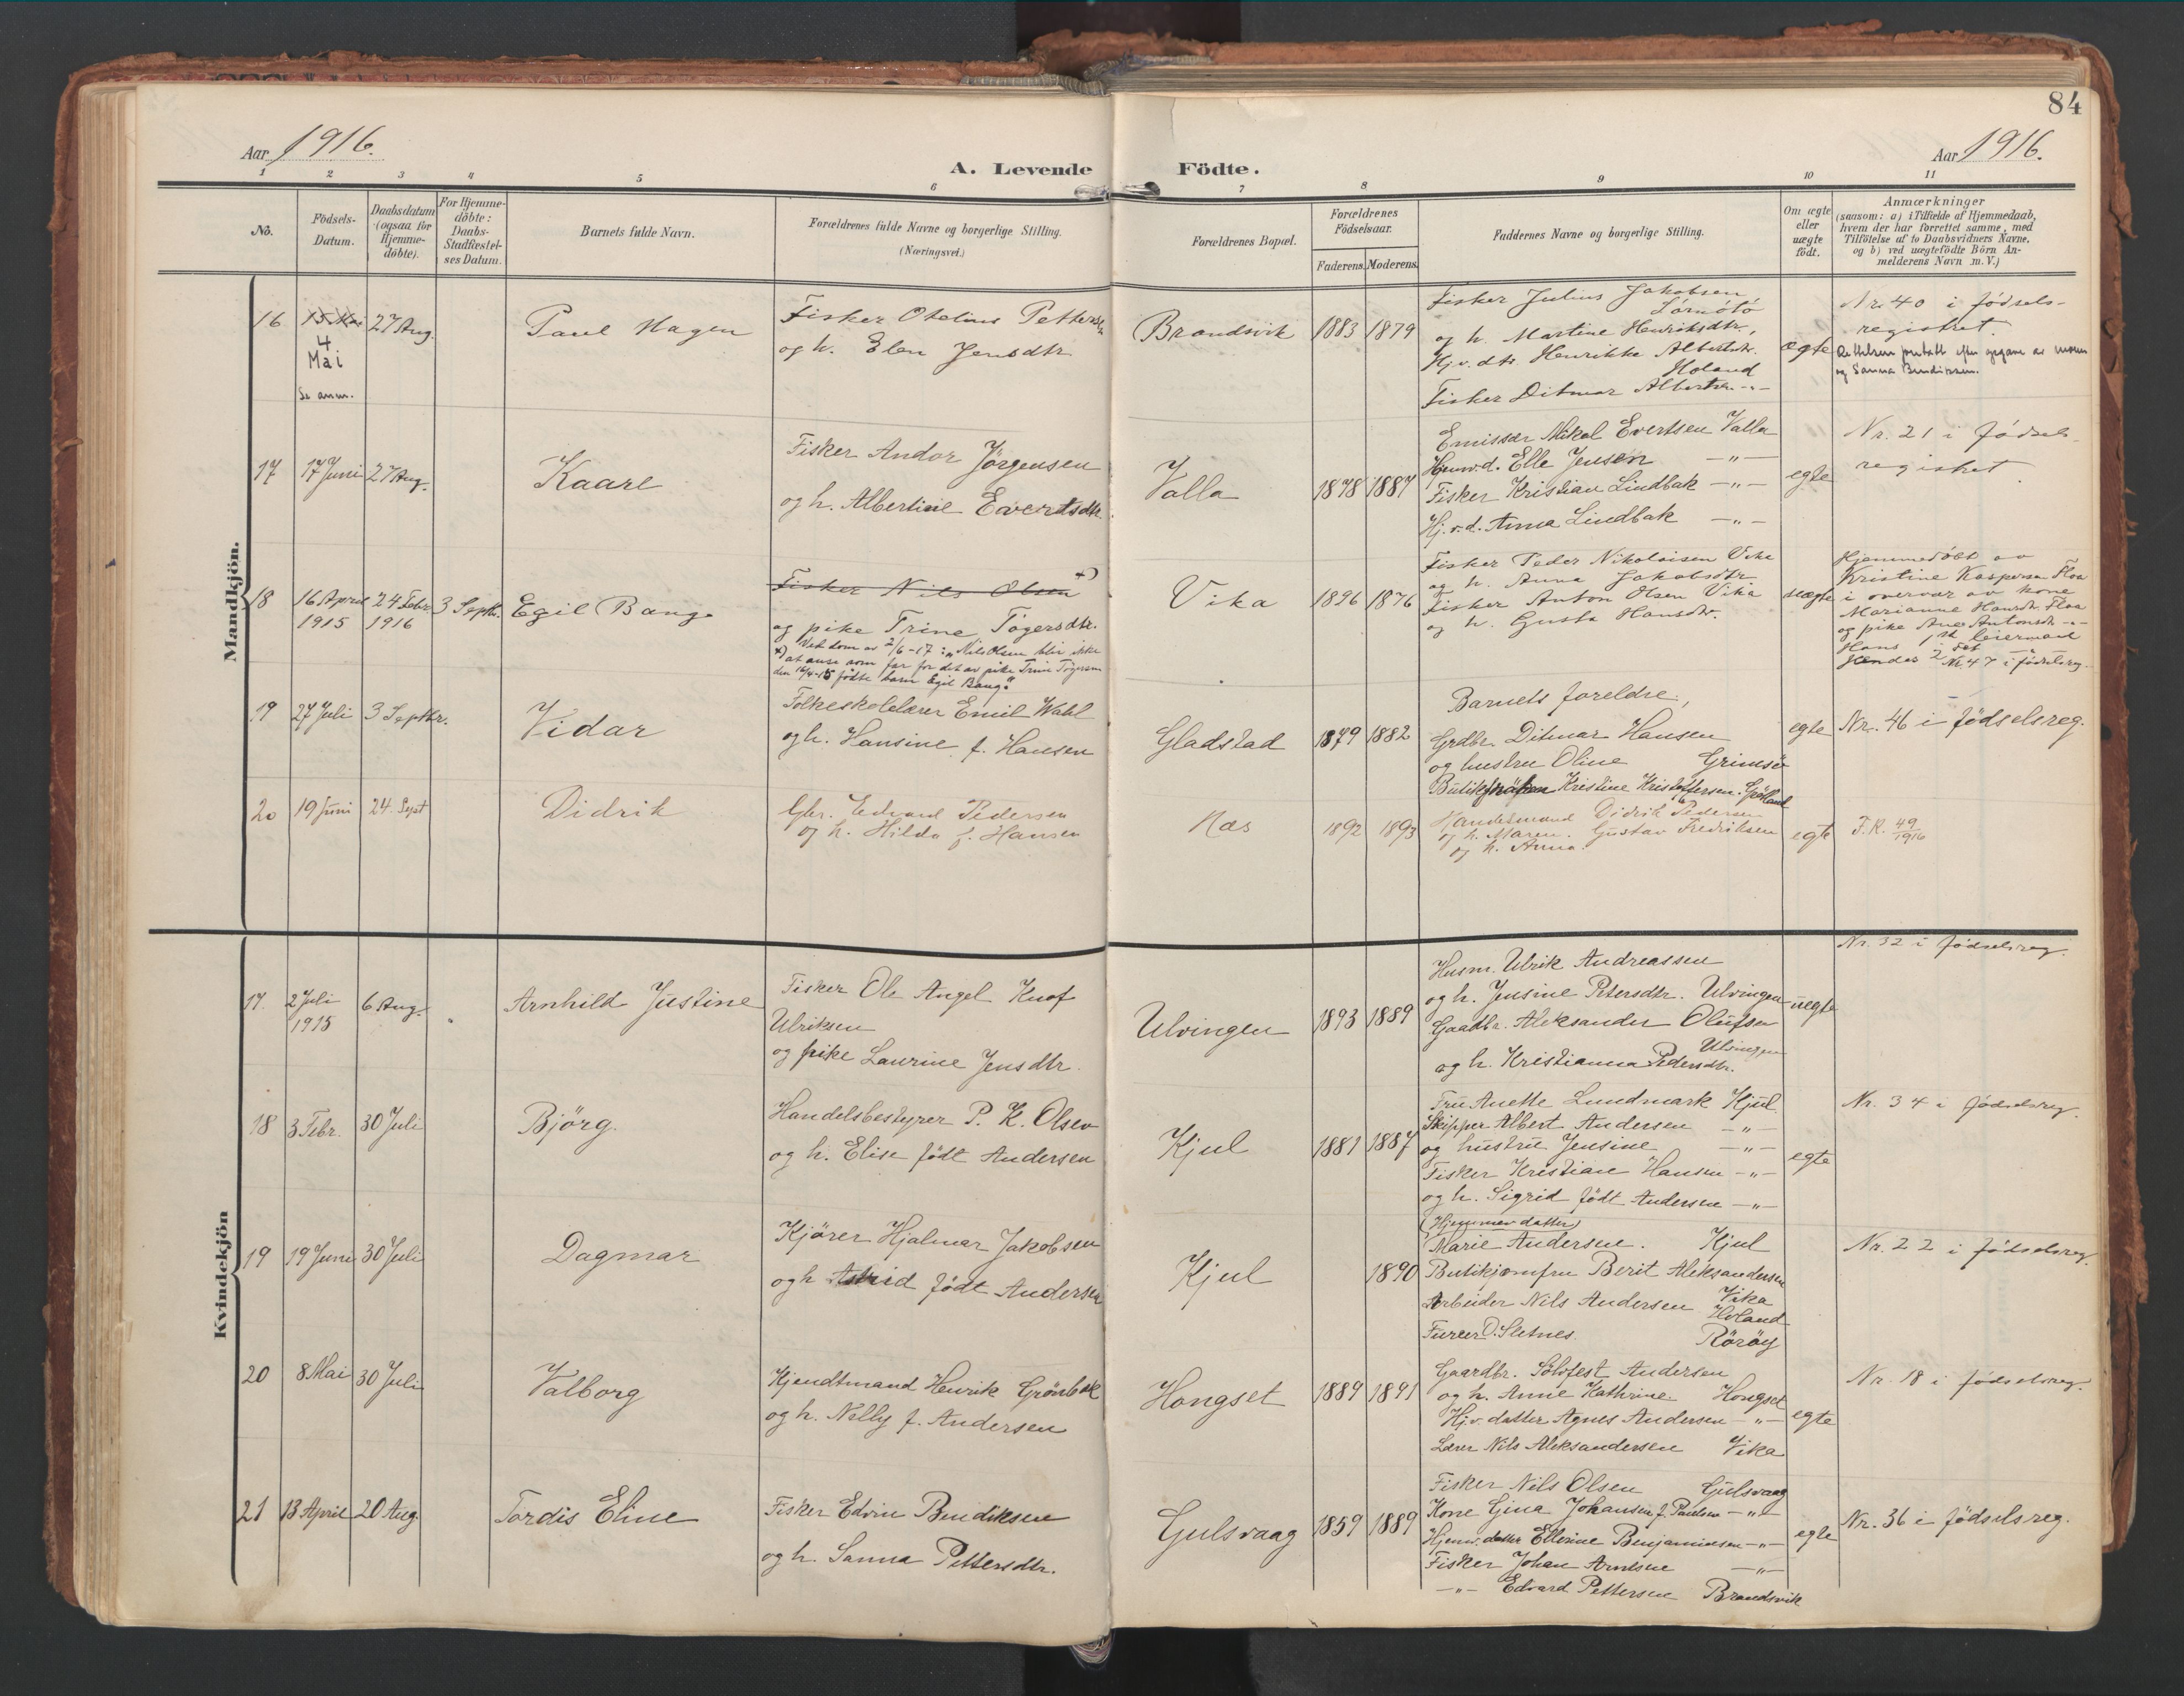 84
Aar 1916.
Aar 1916.
A. Levende Födte.
1 2 3 4 5 6 7 8 9 10 11
No.
Födsels-
Datum.
Daabsdatum
(ogsaa for
Hjemme-
döbte).
For Hjemme-
döbte:
Daabs-
Stadfæstel-
ses Datum.
Barnets fulde Navn.
Forældrenes fulde Navne og borgerlige Stilling.
(Næringsvei.)
Forældrenes Bopæl.
Forældrenes
Födselsaar.
Faderens. Moderens.
Faddernes Navne og borgerlige Stilling.
Om ægte
eller
uægte
født.
Anmærkninger
(saasom: a) i Tilfælde af Hjemmedaab,
hvem der har forrettet samme, med
Tilföielse af to Daabsvidners Navne,
og b) ved uægtefödte Börn An-
melderens Navn m. V.)
Mandkjön.
16
15 Mai
4
Mai
Se anm.
27 Aug.
Paul Hagen
Fisker Otelius Petters
og h. Elen Jensdtr
Brandsvik
1883 1879
Fisker Julius Jakobsen
og h. Martine Henriksdtr.,
Hj.v. dtr. Henrikke Albertsdtr.
Holand
Fisker Ditmar Albertsen -"-
ægte
Nr. 40 i fødsels-
registret.
og Sanna Bendiksen.
17
17 Juni
27 Aug.
Kaare
Fisker Andor Jörgensen
og h. Albertine Evertsdtr.
Valla
1878 1887
Emissær Mikal Evertsen Valla
Hjemv.d. Elle Jensen -"-
Fisker Kristian Lindbak -"-
Hj.v.d. Anna Lindbak -"-
egte
Nr. 21 i fødsels-
registret.
18
16 April
1915
24 Febr.
1916
3 Septb.
Egil Bang
Fisker Nils Olsen x)
og pike Trine Tögersdtr.
x) Ved dom av 2/6-17: "Nils Olsen blir ikke
at anse som far for det av pike Trine Tögersen
den 16/4-15 födte barn Egil Bang"
Vika
1896 1876
Fisker Peder Nikolaisen Vika
og h. Anna Jakobsdtr
Fisker Anton Olsen Vika
og h. Gusta Hansdtr.
uegte
Hjemmedöbt av
Kristine Kaspersen Floa
i overvær av kone
Marianne Hansdtr. Floa
og pike Ane Antonsdtr -"-
Hans 1st leiermaal
Hendes 2det -"-
Nr. 47 i fødselsreg.
19
27 Juli
3 Septbr.
Vidar
Folkeskolelærer Emil Wahl
og h. Hansine f. Hansen
Gladstad
1879 1882
Barnets foreldre,
Grdbr. Ditmar Hansen
og hustru Oline Grimsö
Butikfröken Kristine Kristoffersen.
egte
Nr. 46 i fødselsreg.
20
19 Juni
24. Sept
Didrik
Gbr. Edvard Pedersen
og h. Hilda f. Hansen
Næs
1892 1893
Handelsmand Didrik Pedersen
og h. Maren. Gustav Fredriksen
og h. Anna.
egte
F.R. 49/1916
Kvindekjön
17.
2 Juli
1915
6 Aug.
Arnhild Justine
Fisker Ole Angel Knof
Ulriksen
og pike Laurine Jensdtr.
Ulvingen
1893 1889
Husm. Ulrik Andreassen
og h. Jensine Petersdtr. Ulvingen
Gaardbr. Aleksander Olufsen
Ulvingen
og h. Kristianna Pedersdtr.
uegte
Nr. 32 i fødselsreg.
18
3 Febr.
30 Juli
Björg.
Handelsbestyrer P. K. Olsen
og h. Elise født Andersen
Kjul
1881 1887
Fru Anette Lundmark Kjul.
Skipper Albert Andersen -"-
og hustru Jensine -"-
Fisker Kristian Hansen -"-
og h. Sigrid født Andersen -"-
egte
Nr. 34 i fødselsreg.
19
19 Juni
30 Juli
Dagmar
Kjører Hjalmar Jakobsen
og h Astrid født Andersen
Kjul
1890
(Hjemmev. datter)
Marie Andersen. Kjul
Butikjomfru Berit Aleksandersen
Vika
Arbeider Nils Andersen Holand
Furer O. Sletnes. Röröy
Nr. 22 i fødselsreg.
20
8 Mai
30 Juli
Valborg
Kjendtmand Henrik Grönbek
og h. Nelly f. Andersen
Hongset
1889 1891
Gaardbr. Sölvfest Andersen
og h. Anne Kathrine. Hongset
Hj.v. datter Agnes Andersen -"-
Lærer Nils Aleksandersen Vika
egte
Nr. 18 i fødselsreg.
21
13 April
20 Aug.
Tordis Eline
Fisker Edvin Bendiksen
og h. Sanna Pettersdtr.
Gulsvaag
1859 1889
Fisker Nils Olsen Gulsvaag
Kone Gina Johansen f. Paulsen -"-
Hjemv. datter Ellerine Benjaminsen -"-
Fisker Johan Arntsen -"-
-"- Edvard Pettersen Brandsvik
egte
Nr. 36 i fødselsreg.